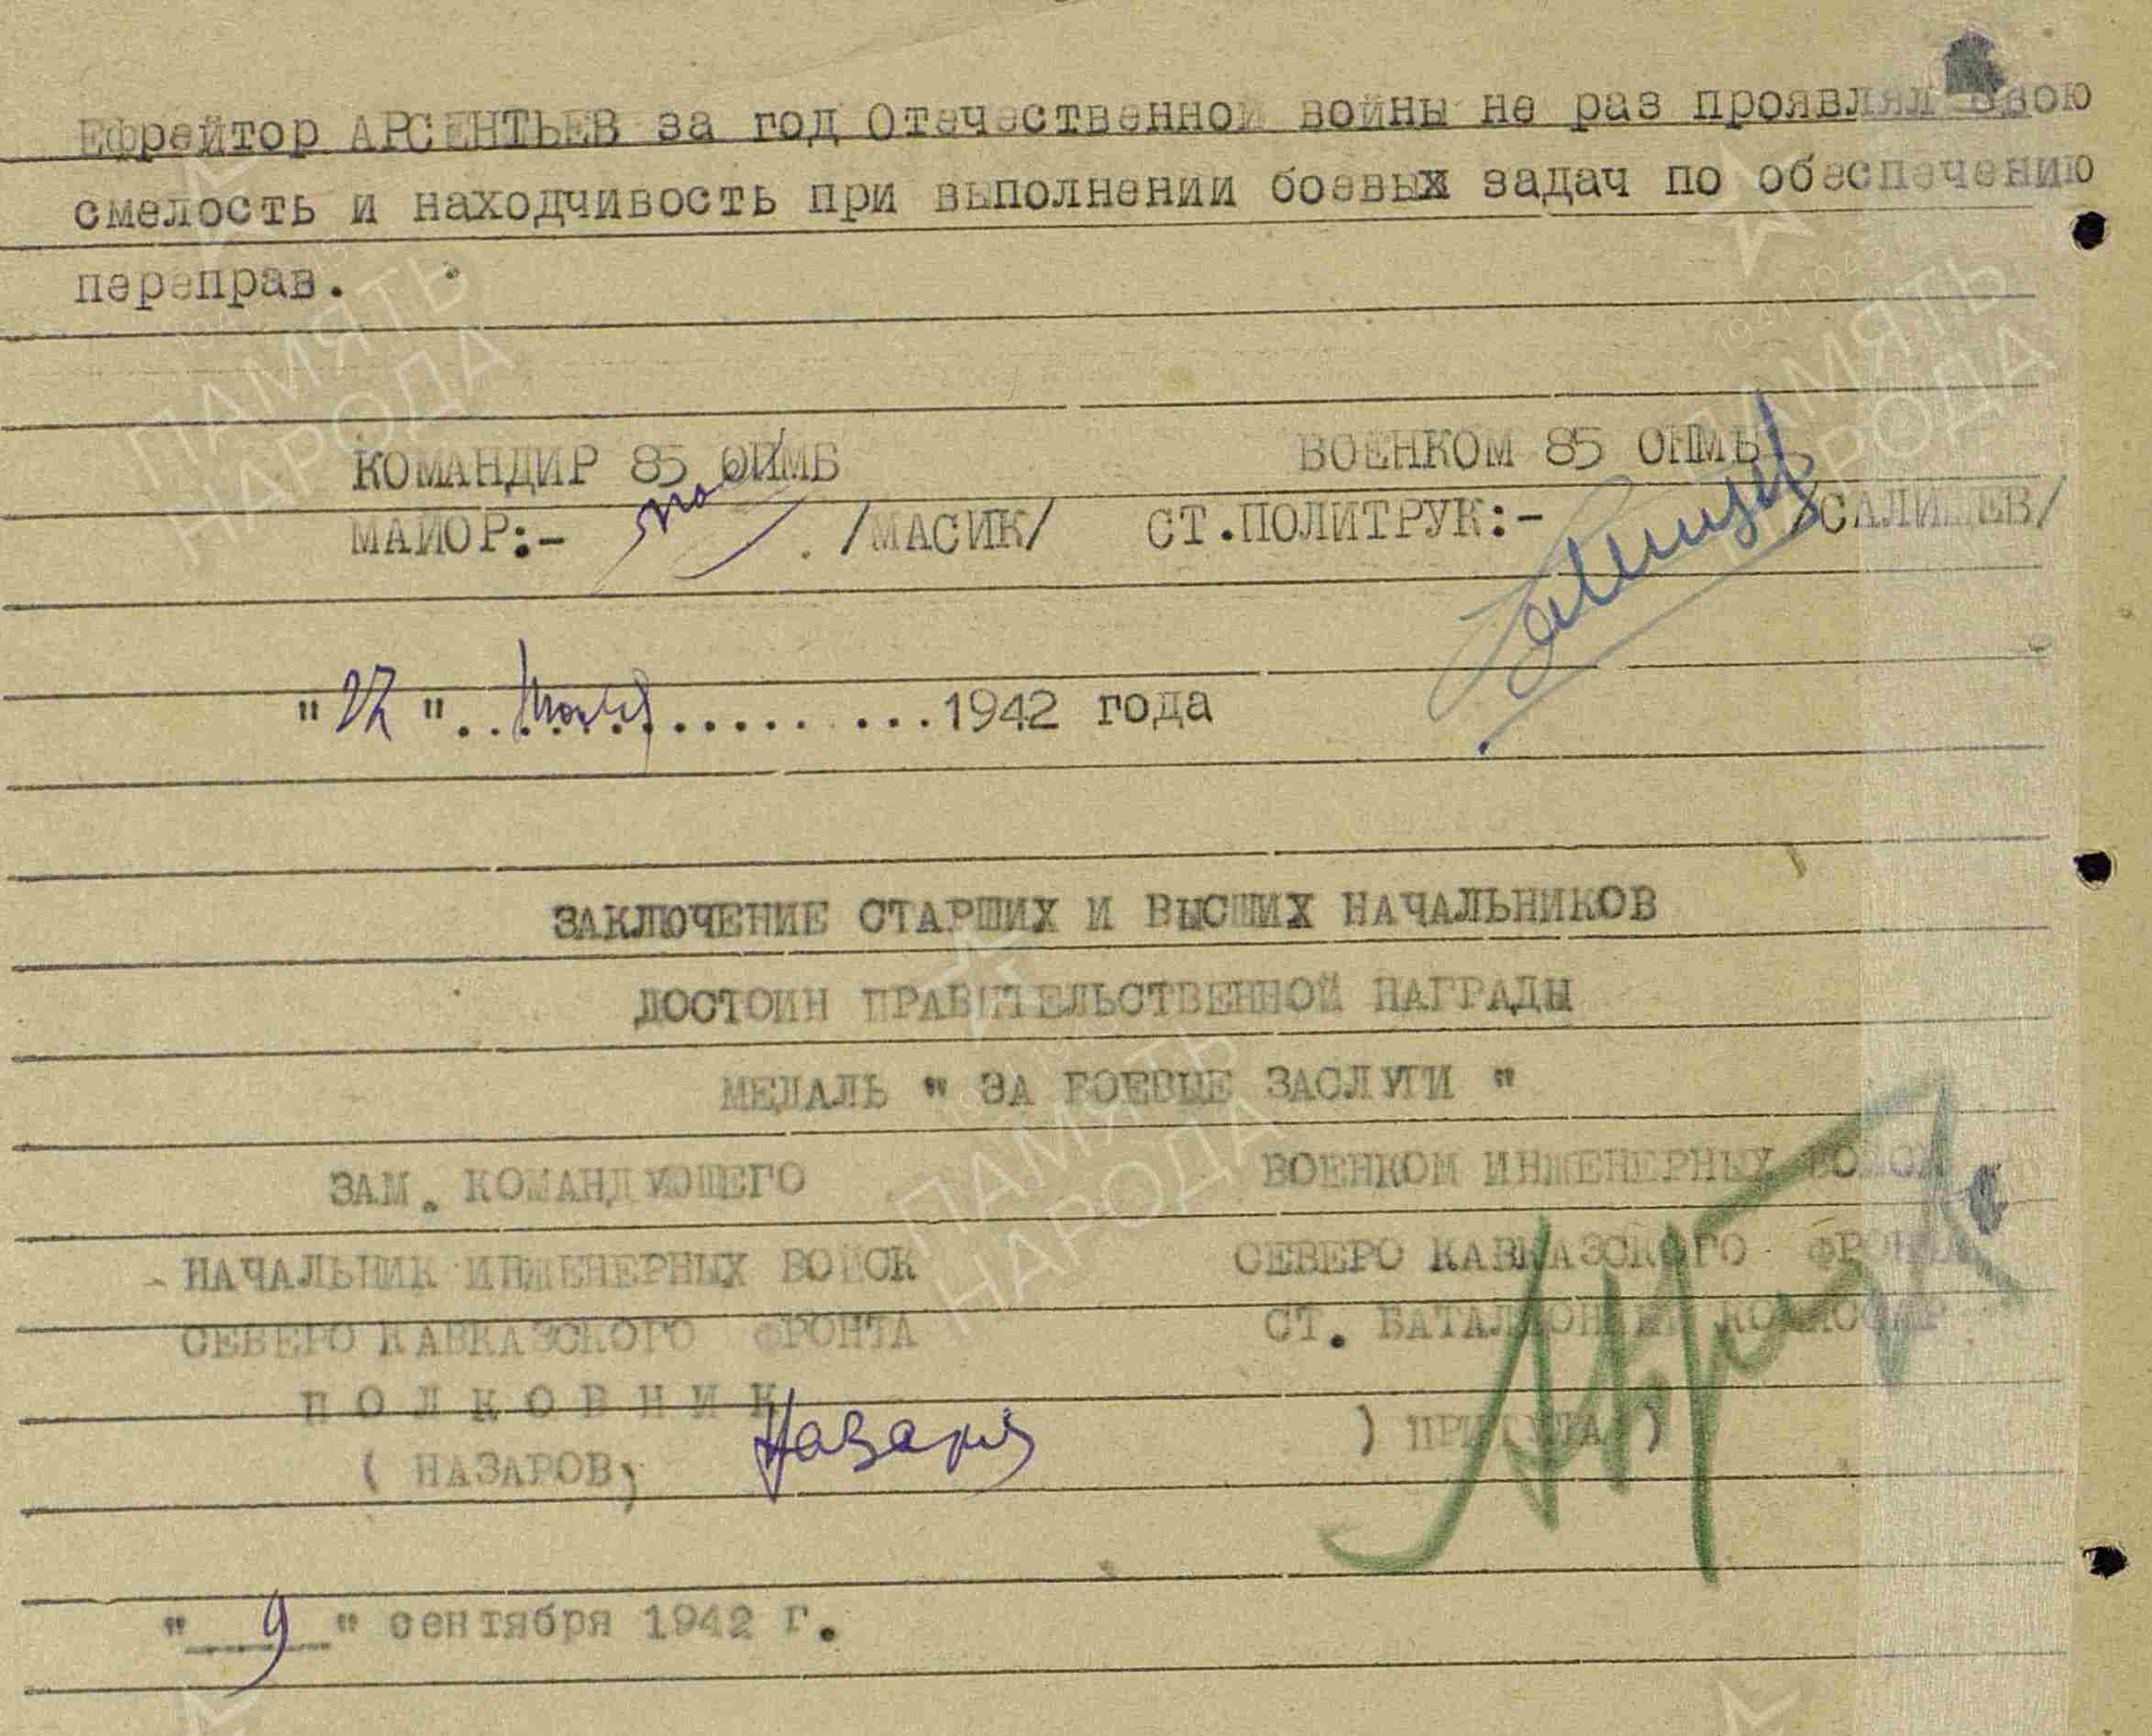 Ефрейтор АРСЕНТЬЕВ за год Отечественной войны не раз проявлял свою
смелость и находчивость при выполнении боевых задач по обеспечению
переправ.
КОМАНДИР 85 ОПМБ ВОЕНКОМ 85 ОПМБ
МАЙОР:- . /МАСИК/ СТ.ПОЛИТРУК:- /САЛИЩЕВ/
"22".............1942 года
ЗАКЛЮЧЕНИЕ СТАРШИХ И ВЫСШИХ НАЧАЛЬНИКОВ
ДОСТОИН ПРАВИТЕЛЬСТВЕННОЙ НАГРАДЫ
МЕДАЛЬ " ЗА БОЕВЫЕ ЗАСЛУГИ "
ЗАМ. КОМАНДУЮЩЕГО ВОЕНКОМ ИНЖЕНЕРНЫХ ВОЙСК
НАЧАЛЬНИК ИНЖЕНЕРНЫХ ВОЙСК СЕВЕРО КАВКАЗСКОГО ФРОНТА
СЕВЕРО КАВКАЗСКОГО ФРОНТА СТ. БАТАЛЬОННЫЙ КОМИССАР
П О Л К О В Н И К
( НАЗАРОВ) Назаров ) ПРИГУЛА )
" 9 " сентября 1942 г.
ПАМЯТЬ
НАРОДА
1941 1945
ПАМЯТЬ
НАРОДА
ПАМЯТЬ
НАРОДА